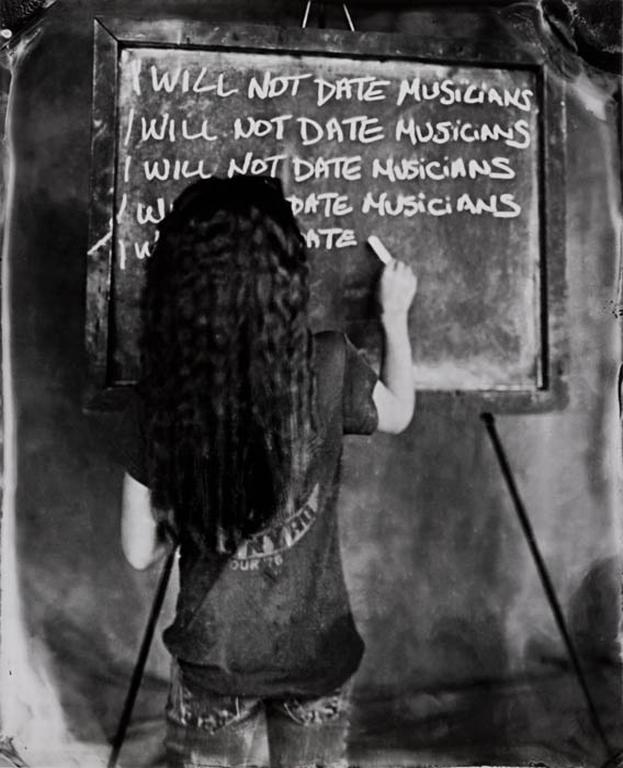 I WILL NOT DATE MUSICIANS
I WILL NOT DATE MUSICIANS
I WILL NOT DATE MUSICIANS
I DATE MUSICIANS
I
TOUR '76